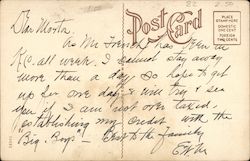 22 2.50
Dear Morton
Post Card
PLACE
STAMP HERE
DOMESTIC
ONE CENT
FOREIGN
TWO CENTS
As Mr French has been in
K.C. all week. I cannot stay away
more than a day. So hope to get
up for one day & will try & see
you if I am not over tired,
"establishing my credit with the
"Big-Boys" — Best to the family